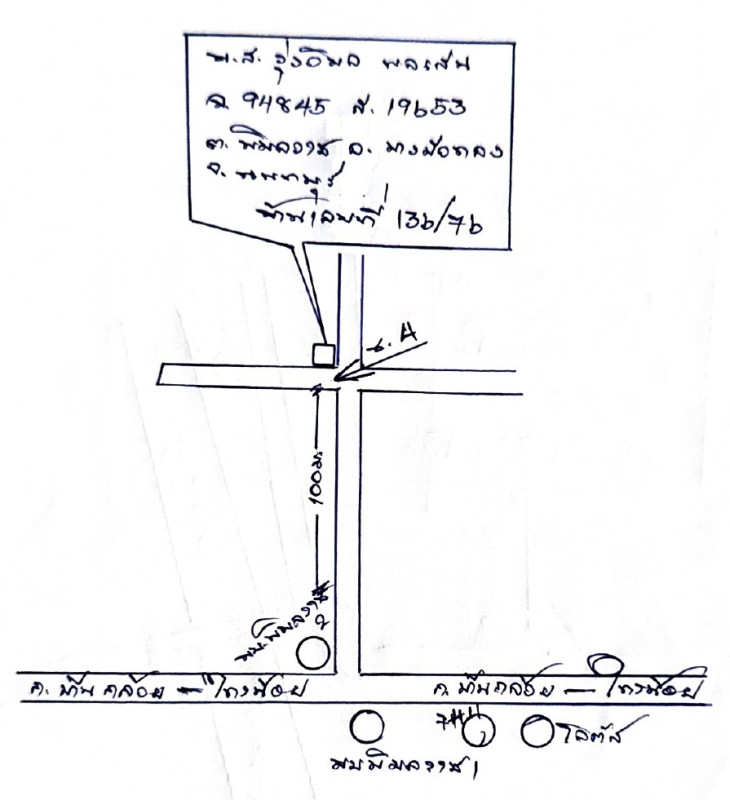 น.ส. รุ่งวิมล พลเสน
ฉ. 94845 ส. 19653
ต. พิมลราช อ. บางบัวทอง
จ. นนทบุรี
บ้านเลขที่ 136/76
ซ. 4
100 ม.
มบ. พิมลราช
2
ถ. บ้านกล้วย — ไทรน้อย
ถ. บ้านกล้วย — ไทรน้อย
โลตัส
มบ พิมลราช 1